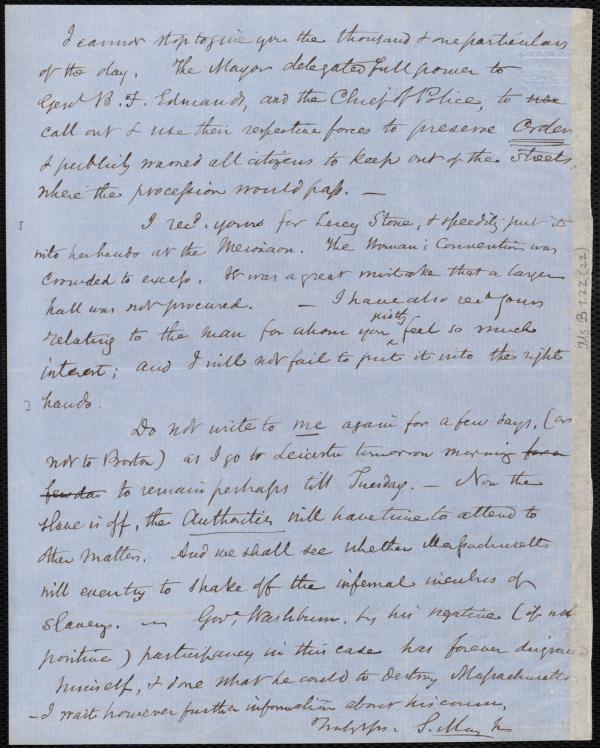 I cannot stop to give you the thousand & one particulars
of the day. The Mayor delegated full power to
Genl B. F. Edmands, and the Chief of Police, to use
call out & use their respective forces to preserve Order
& publicly warned all citizens to keep out of the streets
where the procession would pass. —
I recd. yours for Lucy Stone, & speedily put it
into her hands at the Meionaon. The Woman's Convention was
crowded to excess. It was a great mistake that a larger
hall was not procured. — I have also recd yours
relating to the man for whom you justly feel so much
interest; and I will not fail to put it into the right
hands.
Do not write to me again for a few days, (or
not to Boston) as I go to Leicester tomorrow morning for a
few day to remain perhaps till Tuesday. — Now the
slave is off, the Authorities will have time to attend to
other matters. And we shall see whether Massachusetts
will ever try to shake off the infernal incubus of
slavery. — Govr. Washburn, by his negative (if not
positive) participancy in this case has forever disgraced
himself, & done what he could to destroy Massachusetts
— I wait however further information about his course.
Truly yrs. S. May Jr
Ms B 1.22 (22)